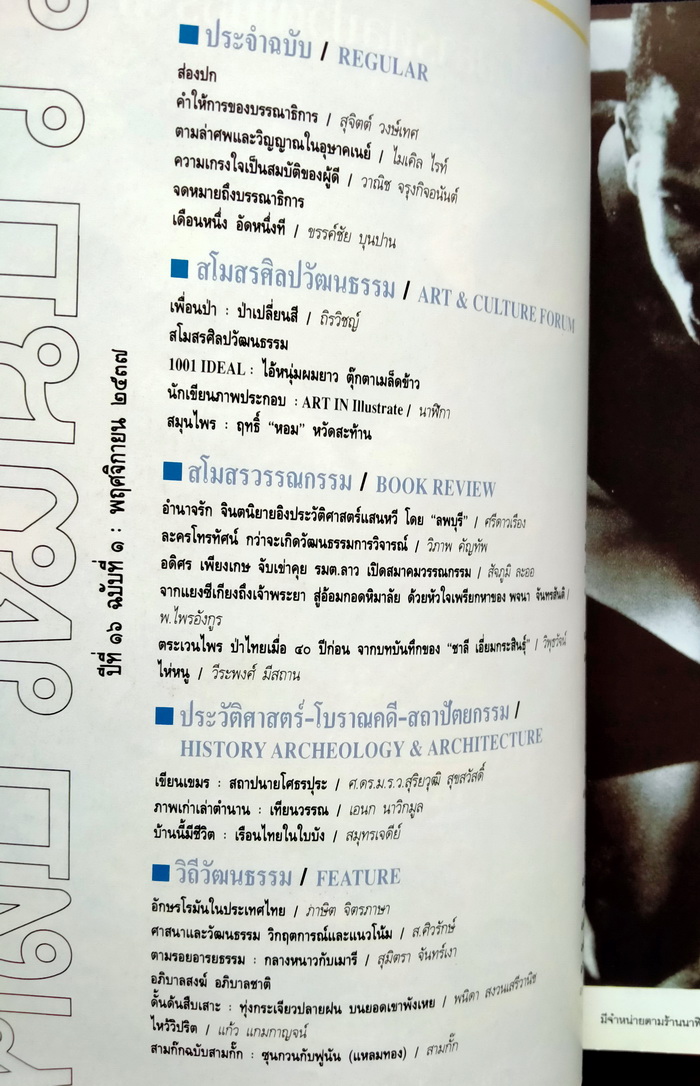 ประจำฉบับ / REGULAR
ส่องปก
คำให้การของบรรณาธิการ / สุจิตต์ วงษ์เทศ
ตามล่าศพและวิญญาณในอุษาคเนย์ / ไมเคิล ไรท์
ความเกรงใจเป็นสมบัติของผู้ดี / วาณิช จรุงกิจอนันต์
จดหมายถึงบรรณาธิการ
เดือนหนึ่ง อัดหนึ่งที / ขรรค์ชัย บุนปาน
สโมสรศิลปวัฒนธรรม / ART & CULTURE FORUM
เพื่อนป่า : ป่าเปลี่ยนสี / ถิรวิชญ์
สโมสรศิลปวัฒนธรรม
1001 IDEAL : ไอ้หนุ่มผมยาว ตุ๊กตาเมล็ดข้าว
นักเขียนภาพประกอบ : ART IN Illustrate / นาฬิกา
สมุนไพร : ฤทธิ์ "หอม" หวัดสะท้าน
สโมสรวรรณกรรม / BOOK REVIEW
อำนาจรัก จินตนิยายอิงประวัติศาสตร์แสนหวี โดย "ลพบุรี" / ศรีดาวเรือง
ละครโทรทัศน์ กว่าจะเกิดวัฒนธรรมการวิจารณ์ / วิภาพ คัญทัพ
อดิศร เพียงเกษ จับเข่าคุย รมต.ลาว เปิดสมาคมวรรณกรรม / สัจภูมิ ละออ
จากแยงซีเกียงถึงเจ้าพระยา สู่อ้อมกอดหิมาลัย ด้วยหัวใจเพรียกหาของ พจนา จันทรสันติ /
พ.ไพรอังกูร
ตระเวนไพร ป่าไทยเมื่อ ๔๐ ปีก่อน จากบทบันทึกของ "ชาลี เอี่ยมกระสินธุ์" /
ไห่หนู / วีระพงศ์ มีสถาน
ประวัติศาสตร์-โบราณคดี-สถาปัตยกรรม /
HISTORY ARCHEOLOGY & ARCHITECTURE
เขียนเขมร : สถาปนายโศธรปุระ / ศ.ดร.ม.ร.ว.สุริยวุฒิ สุขสวัสดิ์
ภาพเก่าเล่าตำนาน : เทียนวรรณ / เอนก นาวิกมูล
บ้านนี้มีชีวิต : เรือนไทยในใบบัง / สมุทรเจดีย์
วิถีวัฒนธรรม / FEATURE
อักษรโรมันในประเทศไทย / ภาษิต จิตรภาษา
ศาสนาและวัฒนธรรม วิกฤตการณ์และแนวโน้ม / ส.ศิวรักษ์
ตามรอยอารยธรรม : กลางหนาวกับเมารี / สุมิตรา จันทร์เงา
อภิบาลสงฆ์ อภิบาลชาติ
ดั้นด้นสืบเสาะ : ทุ่งกระเจียวปลายฝน บนยอดเขาพังเหย / พนิดา สงวนเสรีวานิช
ไหว้วิปริต / แก้ว แกมกาญจน์
สามก๊กฉบับสามกั๊ก : ซุนกวนกับฟูนัน (แหลมทอง) / สามกั๊ก
ปีที่ ๑๖ ฉบับที่ ๑ : พฤศจิกายน ๒๕๓๗